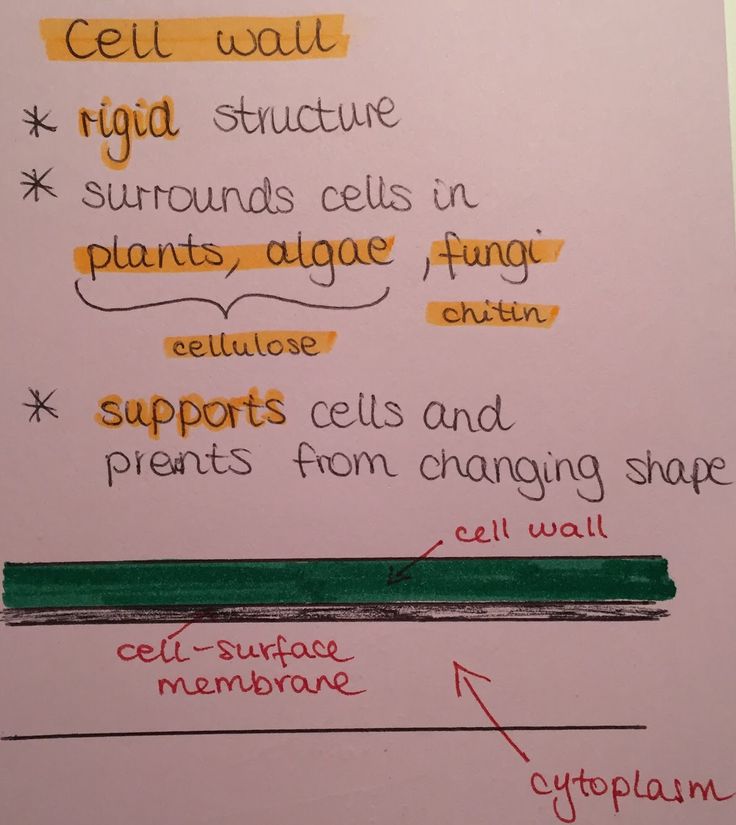 Cell wall
* rigid structure
* surrounds cells in
plants, algae, fungi
cellulose
chitin
* supports cells and
prevnts from changing shape
cell wall
cell-surface
membrane
cytoplasm